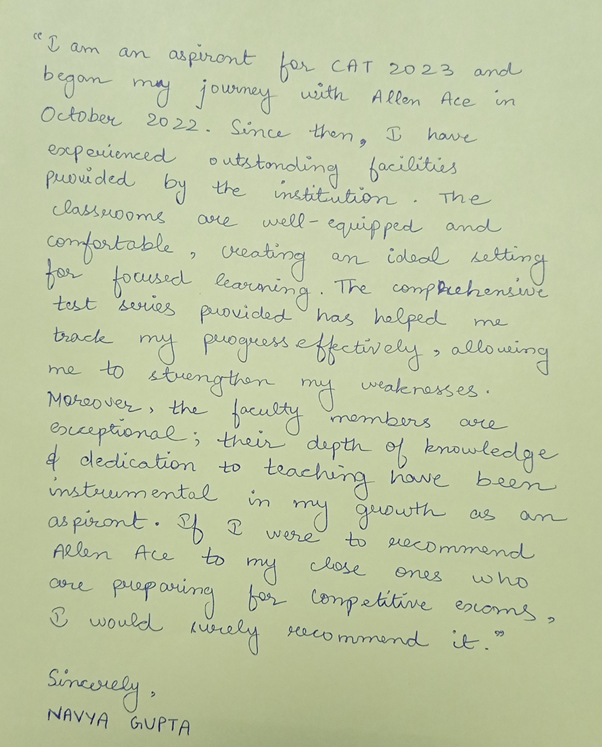 "I am an aspirant for CAT 2023 and
began my journey with Allen Ace in
October 2022. Since then, I have
experienced outstanding facilities
provided by the institution. The
classrooms are well-equipped and
comfortable, creating an ideal setting
for focused learning. The comprehensive
test series provided has helped me
track my progress effectively, allowing
me to strengthen my weaknesses.
Moreover, the faculty members are
exceptional; their depth of knowledge
& dedication to teaching have been
instrumental in my growth as an
aspirant. If I were to recommend
Allen Ace to my close ones who
are preparing for competitive exams,
I would surely recommend it."
Sincerely,
NAVYA GUPTA